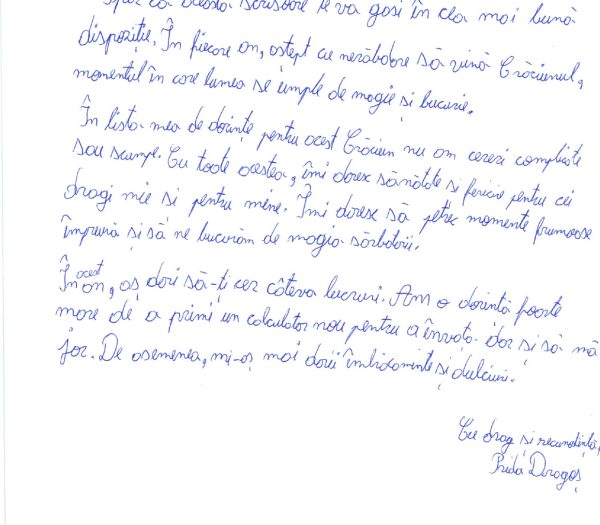 că această scrisoare te va găsi în cea mai bună
dispoziție. În fiecare an, aștept cu nerăbdare să vină Crăciunul,
momentul în care lumea se umple de magie și bucurie.
În lista mea de dorințe pentru acest Crăciun nu am cereri complicate
sau scumpe. Cu toate acestea, îmi doresc sănătate si fericire pentru cei
dragi mie si pentru mine. Îmi doresc să petrec momente frumoase
împreună și să ne bucurăm de magia sărbătorii.
În acest an, aș dori să-ți cer câteva lucruri. Am o dorință foarte
mare de a primi un calculator nou pentru a învăța dar și să mă
joc. De asemenea, mi-aș mai dorii îmbrăcăminte și dulciuri.
Cu drag și recunoștință,
Dragoș